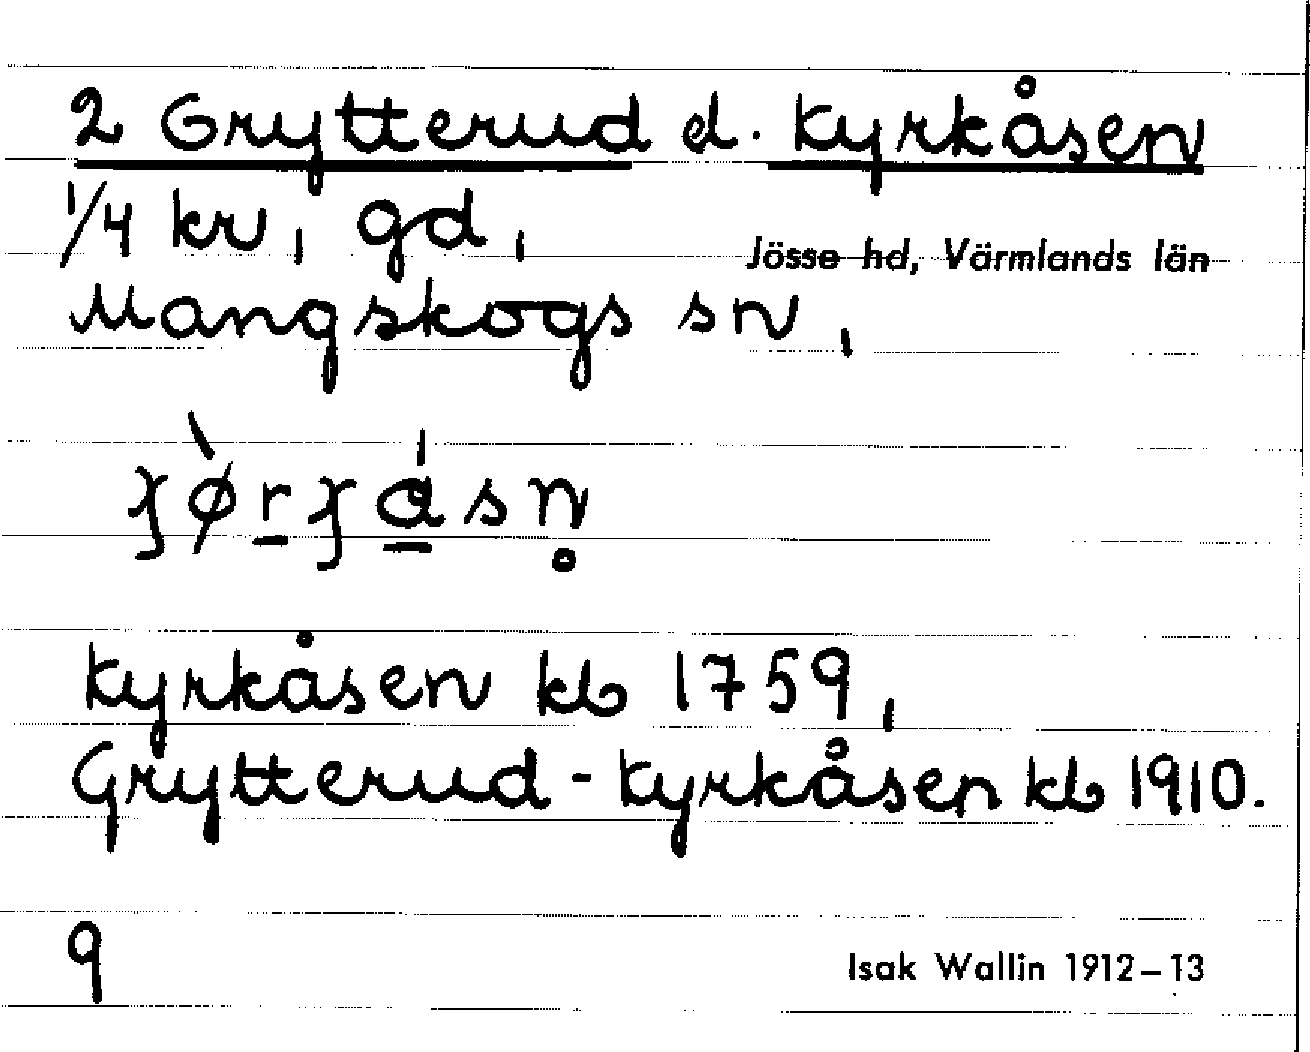 2 Grytterud el. Kyrkåsen
1/4 kr, gd,
Jösse hd, Värmlands län
Mangskogs sn,
Kyrkåsen kb 1759,
Grytterud - Kyrkåsen kb 1910.
9
Isak Wallin 1912–13